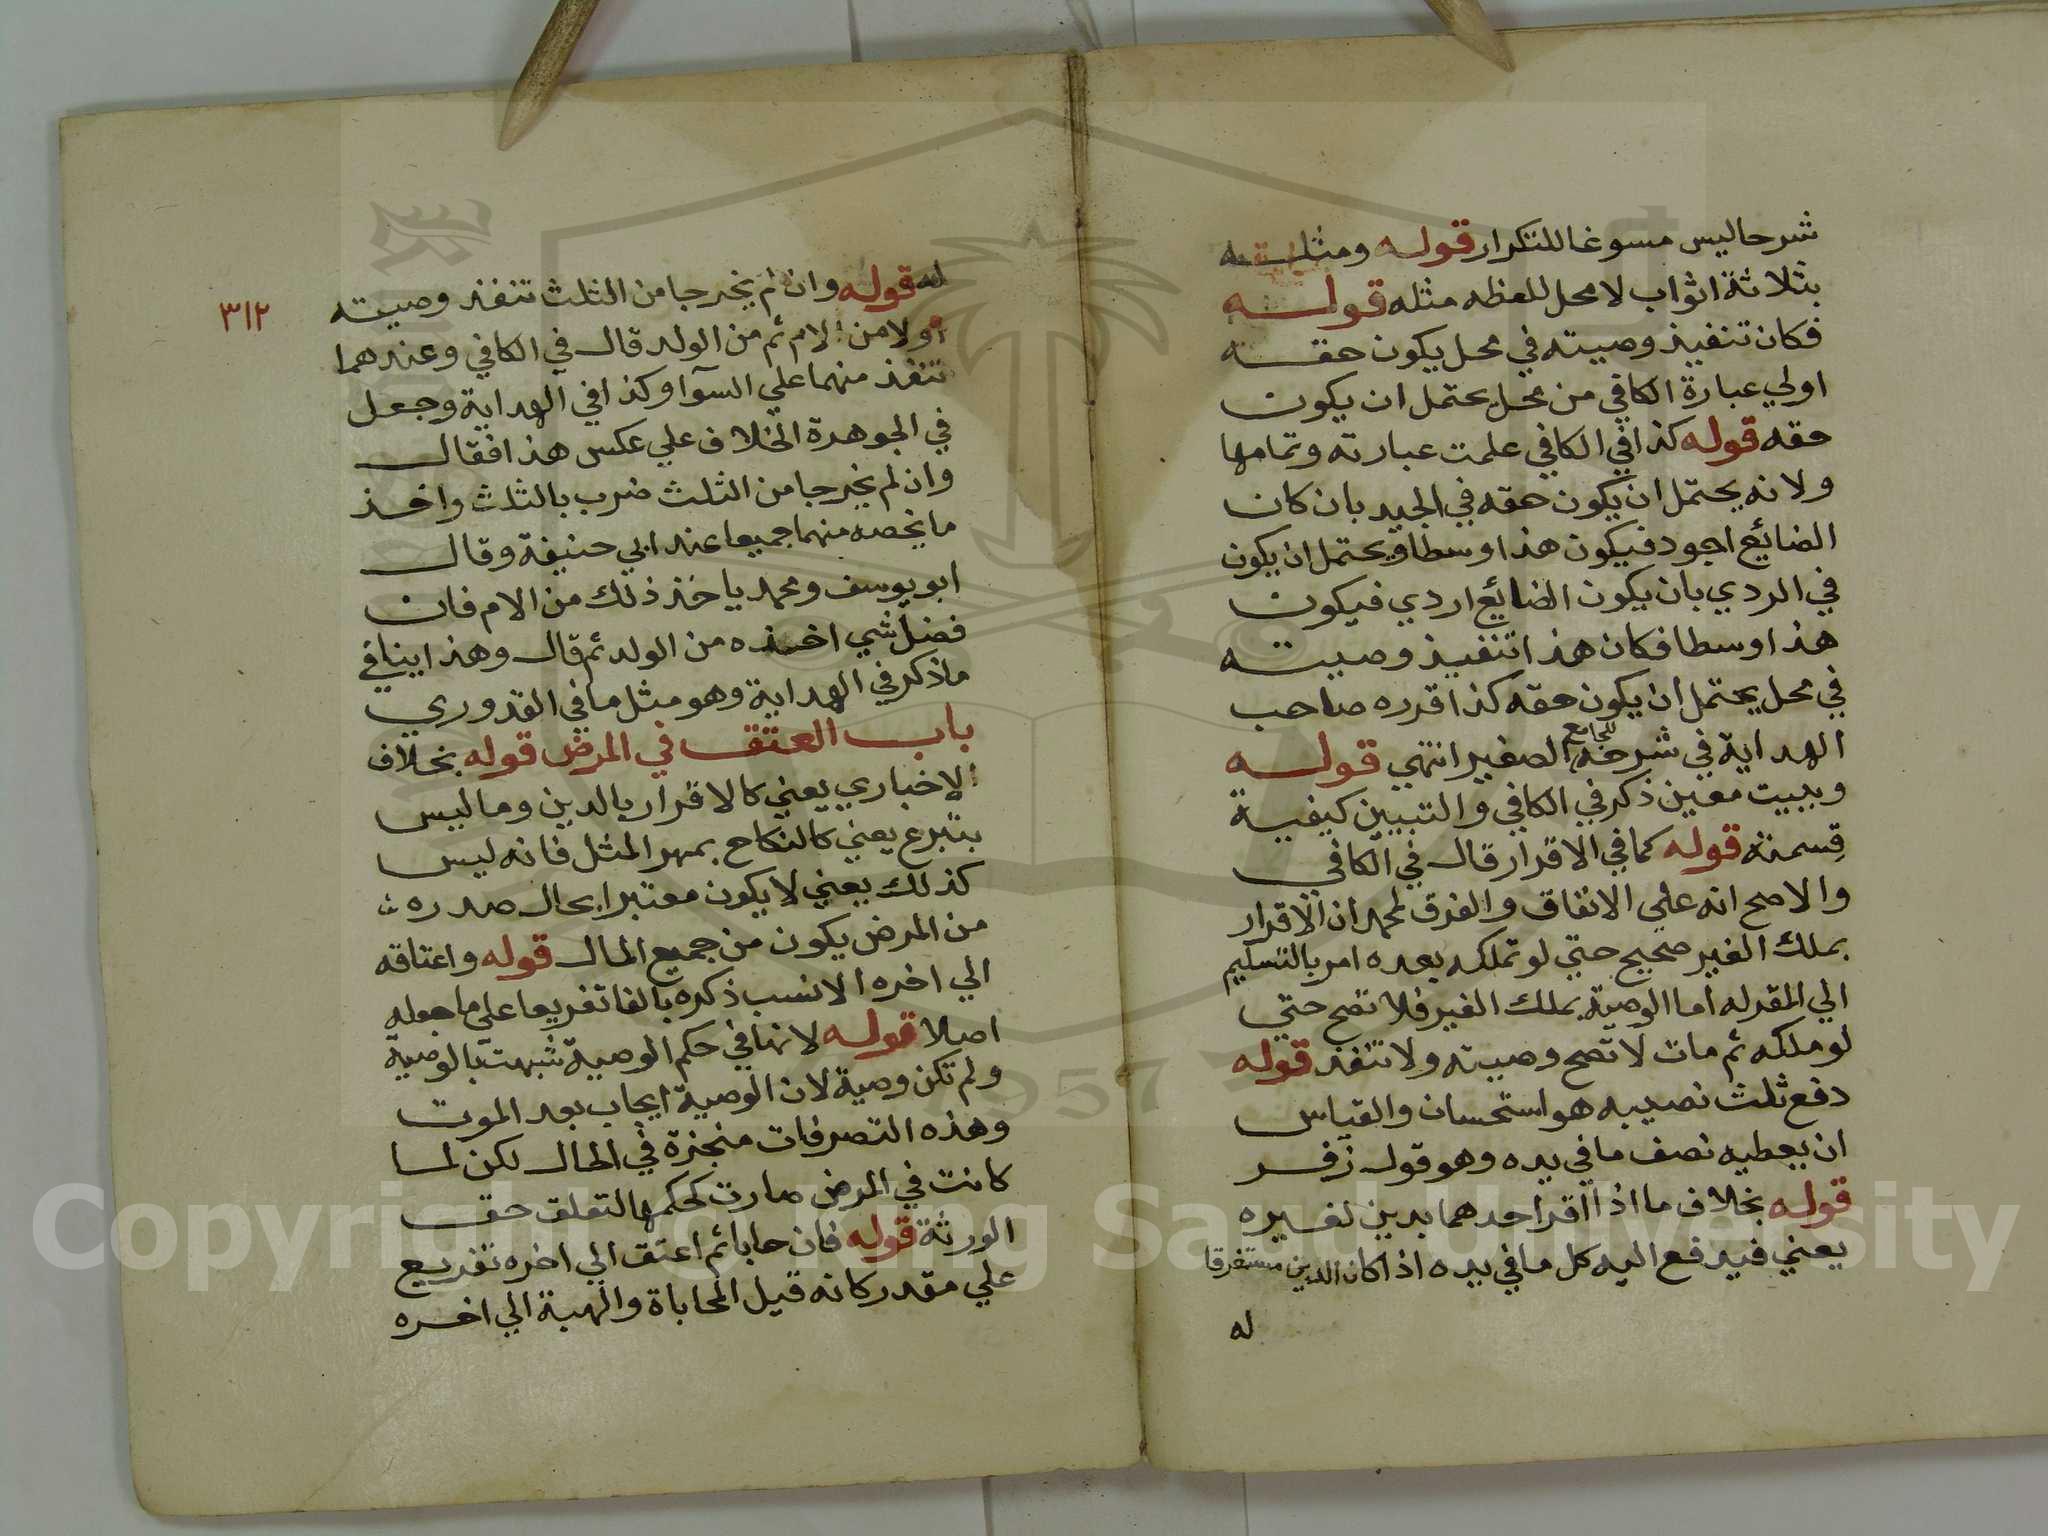 شرحا ليس مسوغا للتكرار قوله ومثله
بثلاثة اثواب لا محل للفظه مثله قوله
فكان تنفيذ وصيته في محل يكون حقه
اولي عبارة الكافي من محل يحتمل ان يكون
حقه قوله كذا في الكافي علمت عبارته وتمامها
ولانه يحتمل ان يكون حقه في الجيد بان كان
الضائع اجود فيكون هذا وسطا ويحتمل ان يكون
في الردي بان يكون الضايع اردي فيكون
هذا وسطا فكان هذا تنفيذ وصيته
في محل يحتمل ان يكون حقه كذا قرره صاحب
الهداية في شرحه للجامع الصغير انتهي قوله
وببيت معين ذكر في الكافي والتبيين كيفية
قسمته قوله كما في الاقرار قال في الكافي
والاصح انه علي الاتفاق والفرق لمحمد ان الاقرار
بملك الغير صحيح حتي لو تملكه بعده امر بالتسليم
الي المقر له اما الوصية بملك الغير فلا تصح حتي
لو ملكه ثم مات لا تصح وصيته ولا تنفذ قوله
دفع ثلث نصيبه هو استحسان والقياس
ان يعطيه نصف ما في يده وهو قول زفر
قوله بخلاف ما اذا اقر احدهما بدين لغيره
يعني فيدفع اليه كل ما في يده اذا كان الدين مستغرقا
له
٣١٢
له قوله وان لم يخرجا من الثلث تنفذ وصيته
اولا من الام ثم من الولد قال في الكافي وعندهما
تنفذ منهما علي السوآ وكذا في الهداية وجعل
في الجوهرة الخلاف علي عكس هذا فقال
وان لم يخرجا من الثلث ضرب بالثلث واخذ
ما يخصه منهما جميعا عند ابي حنيفة وقال
ابو يوسف ومحمد ياخذ ذلك من الام فان
فضل شي اخذه من الولد ثم قال وهذا ينافي
ما ذكر في الهداية وهو مثل ما في القدوري
باب العتق في المرض قوله بخلاف
الاخباري يعني كالاقرار بالدين وما ليس
بتبرع يعني كالنكاح بمهر المثل فانه ليس
كذلك يعني لا يكون معتبرا بحال صدره
من المرض يكون من جميع المال قوله واعتاقه
الي اخره الانسب ذكره بالفا تفريعا علي ما جعله
اصلا قوله لانها في حكم الوصية شبهت بالوصية
ولم تكن وصية لان الوصية ايجاب بعد الموت
وهذه التصرفات منجزة في الحال لكن لما
كانت في المرض صارت كحكمها لتعلق حق
الورثة قوله فان حابا ثم اعتق الي اخره تفريع
علي مقدر كانه قيل المحاباة والهبة الي اخره
Copyright © King Saud University
1957